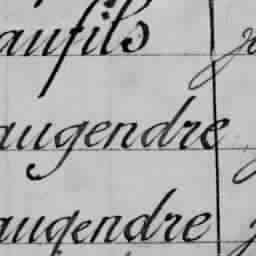 aufils
augendre
augendre